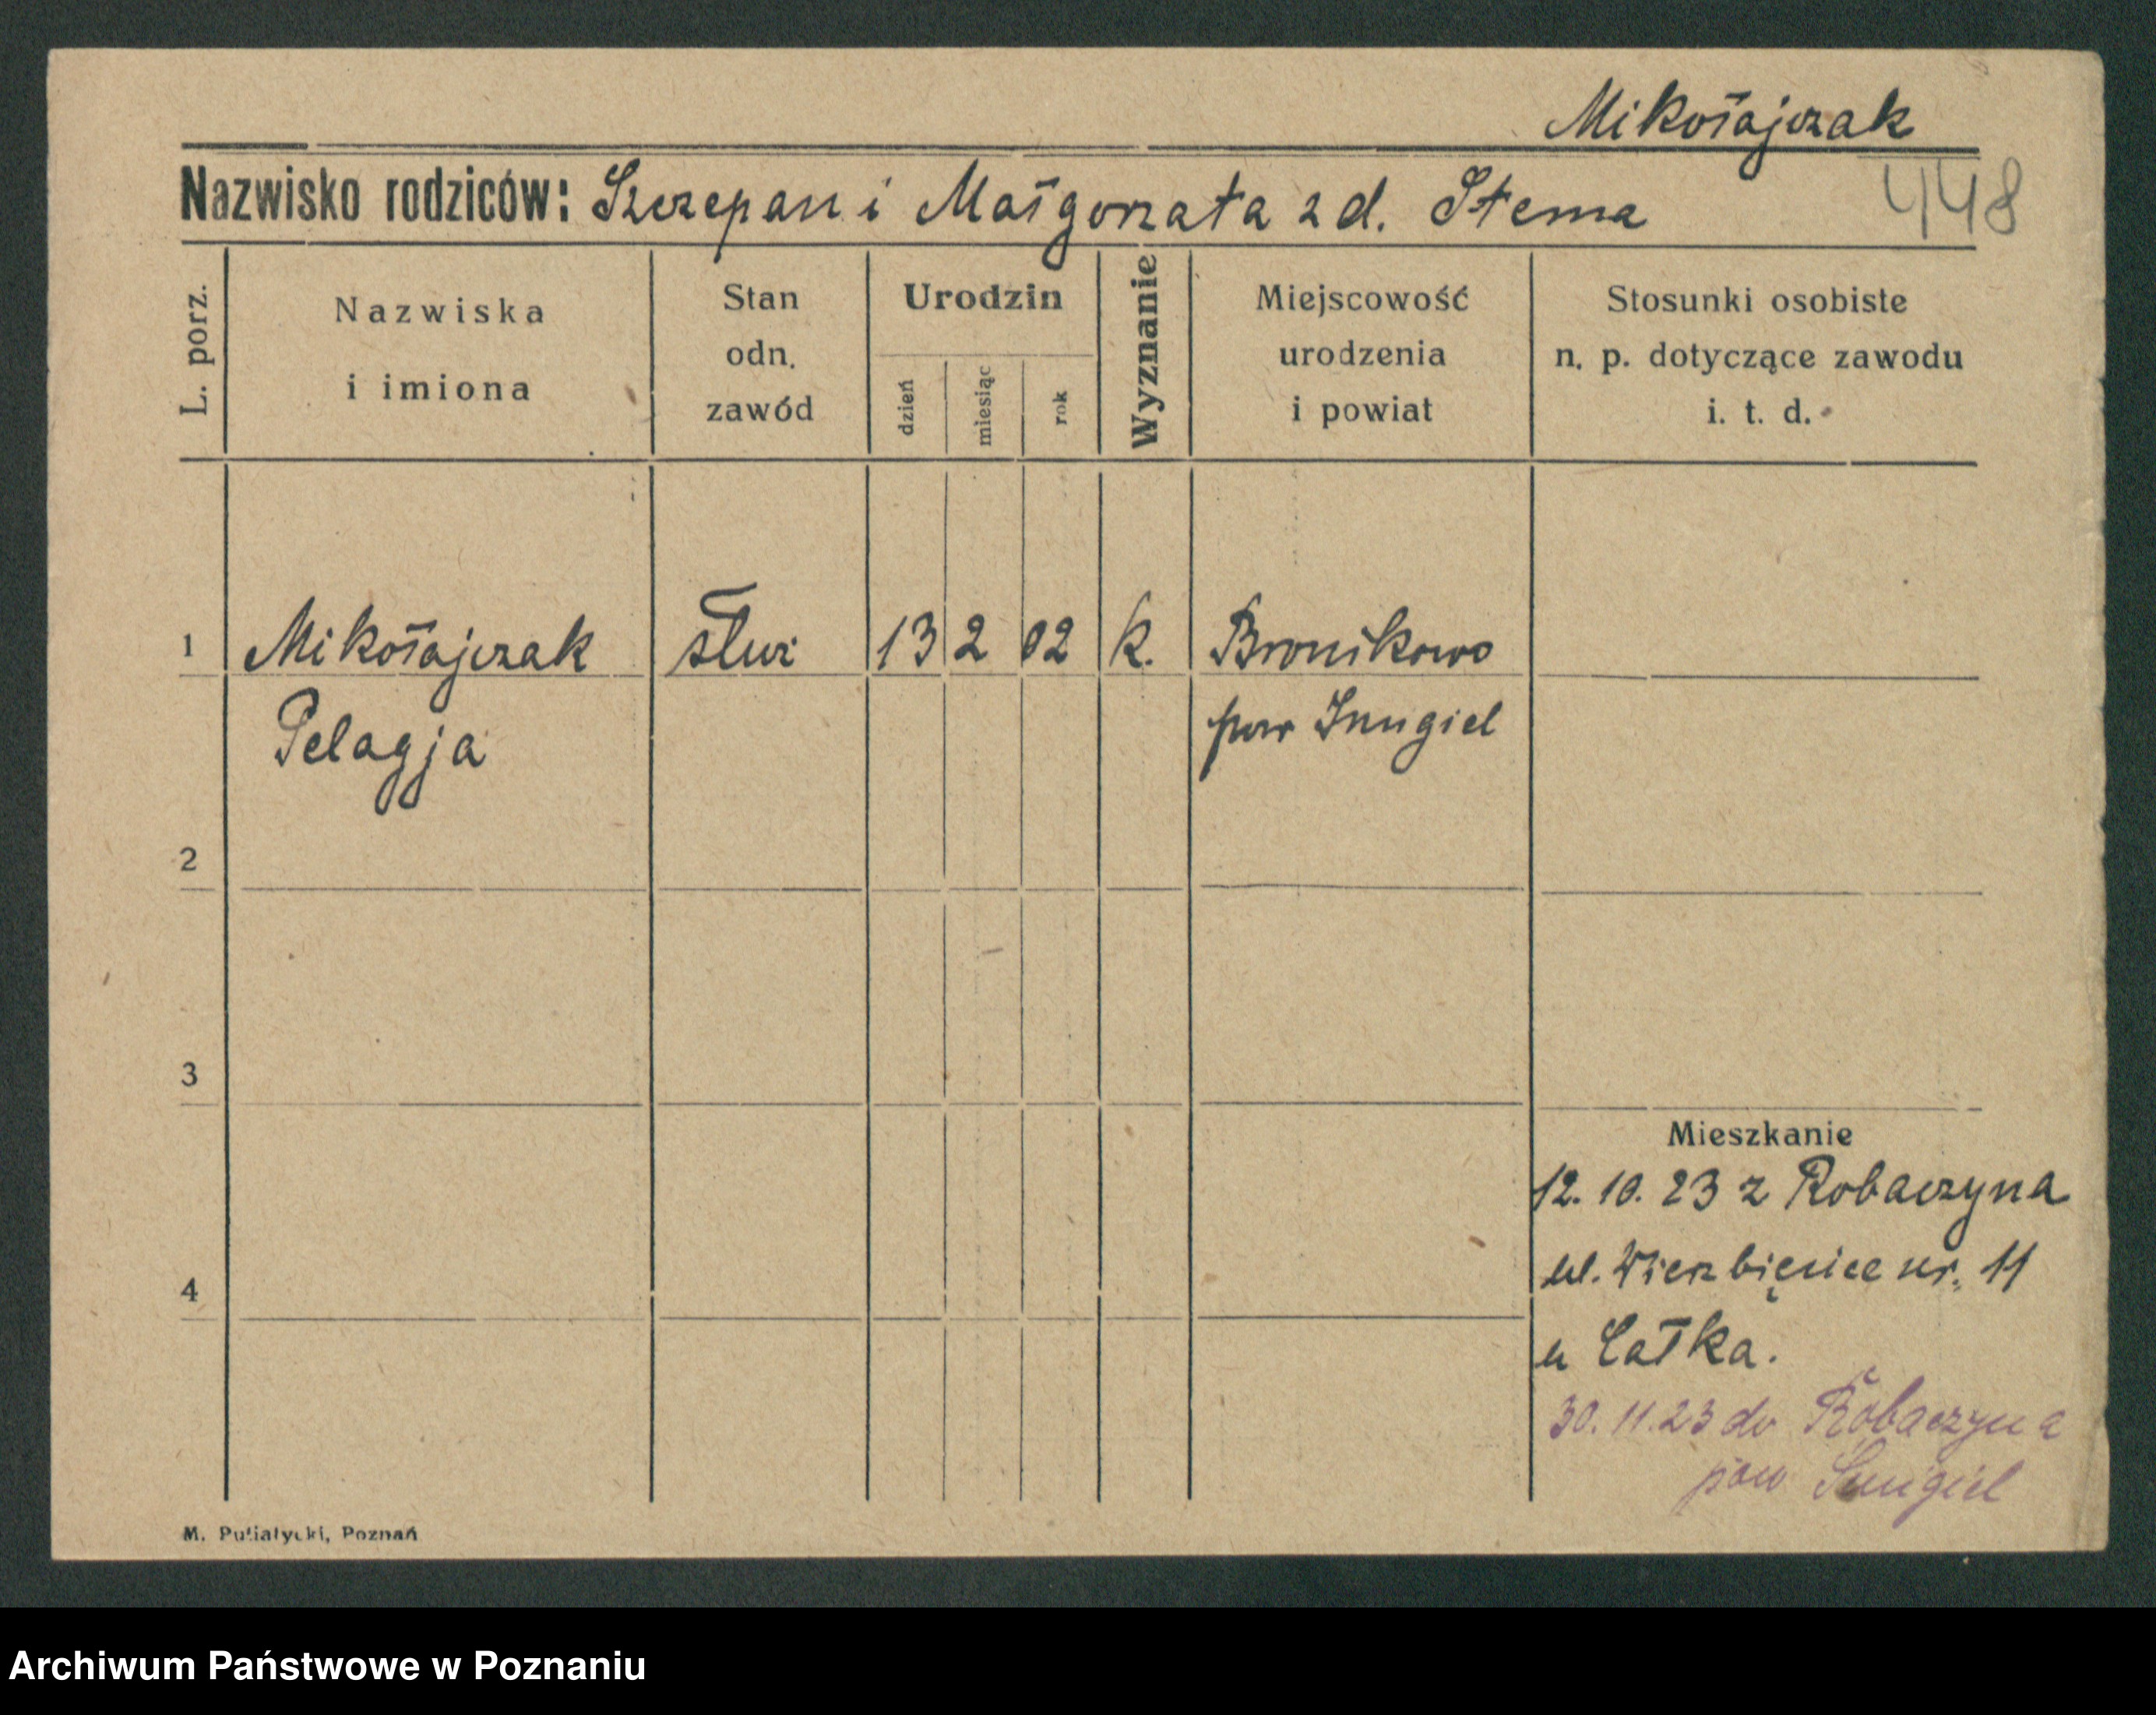 Mikołajczak
Nazwisko rodziców: Szczepan i Małgorzata z d. Stema
448
L. porz.
Nazwiska
i imiona
Stan
odn.
zawód
Urodzin
dzień
miesiąc
rok
Wyznanie
Miejscowość
urodzenia
i powiat
Stosunki osobiste
n. p. dotyczące zawodu
i. t. d.
1 Mikołajczak służ 13 2 02 k. Bronikowo
Pelagja pow Śmigiel
2
3
Mieszkanie
12. 10. 23 z Robaczyna
4
ul. Wierzbięcice nr. 11
u Całka.
30. 11. 23 do Robaczyna
pow Śmigiel
M. Putiatycki, Poznań
Archiwum Państwowe w Poznaniu